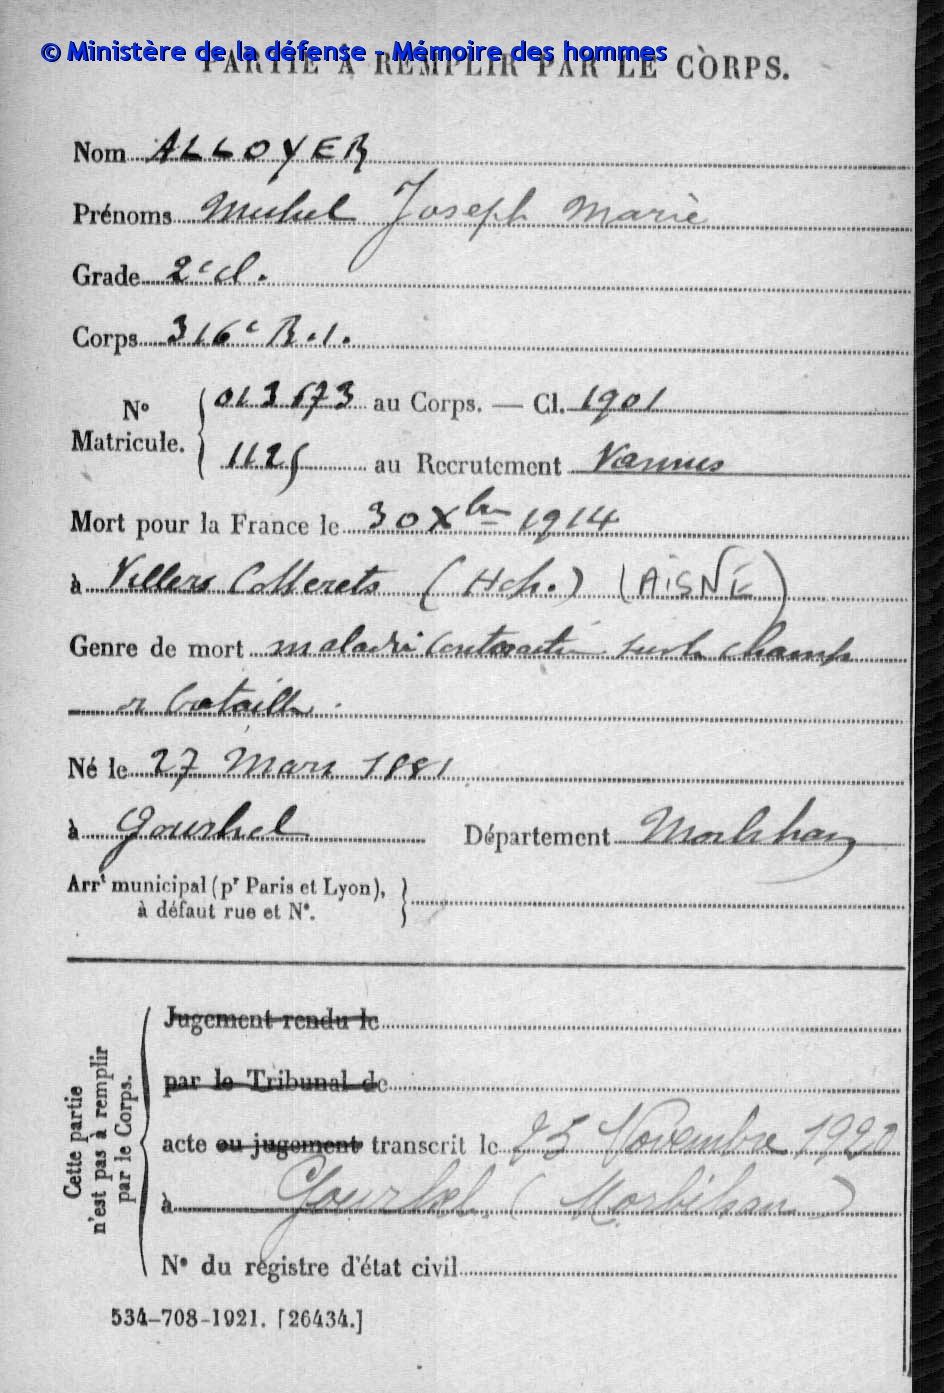 © Ministère de la défense - Mémoire des hommes
PARTIE À REMPLIR PAR LE CORPS.
Nom ALLOYER
Prénoms Michel Joseph Marie
Grade 2e cl.
Corps 316e R.I.
No Matricule. 013673 au Corps. — Cl. 1901
1125 au Recrutement Vannes
Mort pour la France le 30 Xbre 1914
à Villers Cotterets (Hôp.) (AISNE)
Genre de mort maladie contractée sur le champ
de bataille.
Né le 27 Mars 1881
à Gourhel Département Morbihan
Arrt municipal (pr Paris et Lyon),
à défaut rue et No.
Cette partie
n'est pas à remplir
par le Corps.
Jugement rendu le
par le Tribunal de
acte ou jugement transcrit le 25 Novembre 1920
à Gourhel (Morbihan)
No du registre d'état civil
534-708-1921. [26434.]